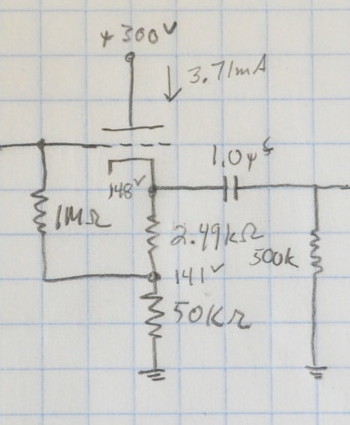 +300V
3.71mA
1.0μf
148V
1MΩ
2.49kΩ
500k
141V
50KΩ